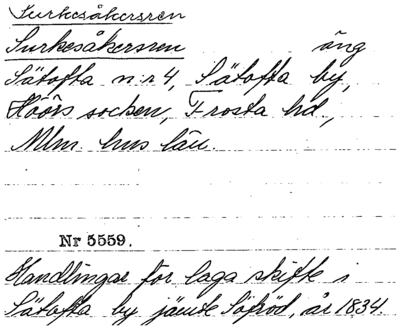 Surkesåkersren
Surkesåkersren äng
Sätofta nr 4, Sätofta by,
Höörs socken, Frosta hd.,
Mlm hus län.
Nr 5559.
Handlingar för laga skifte i
Sätofta by jämte Söfröd, år 1834.